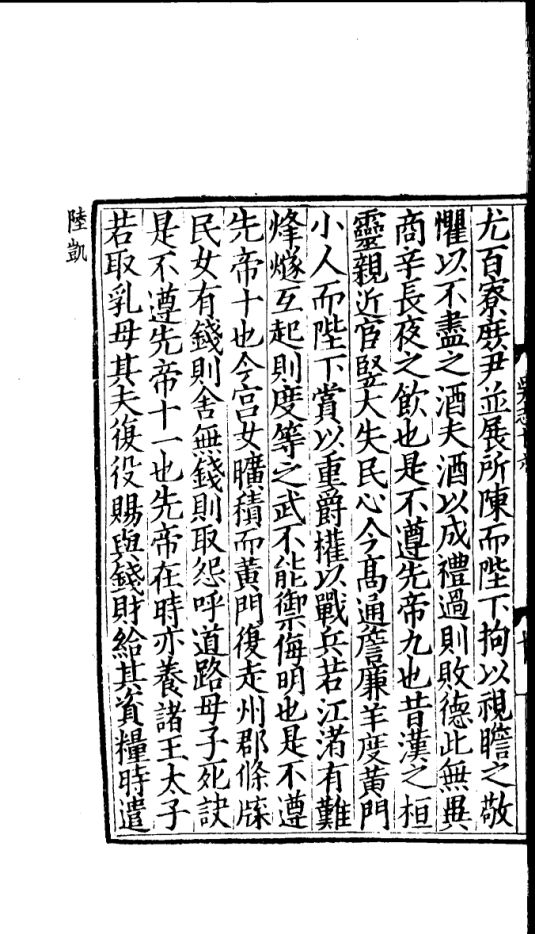 尤百寮庶尹並展所陳而陛下拘以視瞻之敬
懼以不盡之酒夫酒以成禮過則敗德此無異
商辛長夜之飲也是不遵先帝九也昔漢之桓
靈親近宦竪大失民心今髙通詹廉羊度黃門
小人而陛下賞以重爵權以戰兵若江渚有難
烽燧互起則度等之武不能禦侮明也是不遵
先帝十也今宫女曠積而黃門復走州郡條牒
民女有錢則舍無錢則取怨呼道路母子死訣
是不遵先帝十一也先帝在時亦養諸王太子
若取乳母其夫復役賜與錢財給其資糧時遣
陸凱